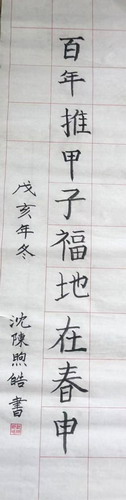 百年推甲子福地在春申
戊亥年冬
沈陳煦皓書